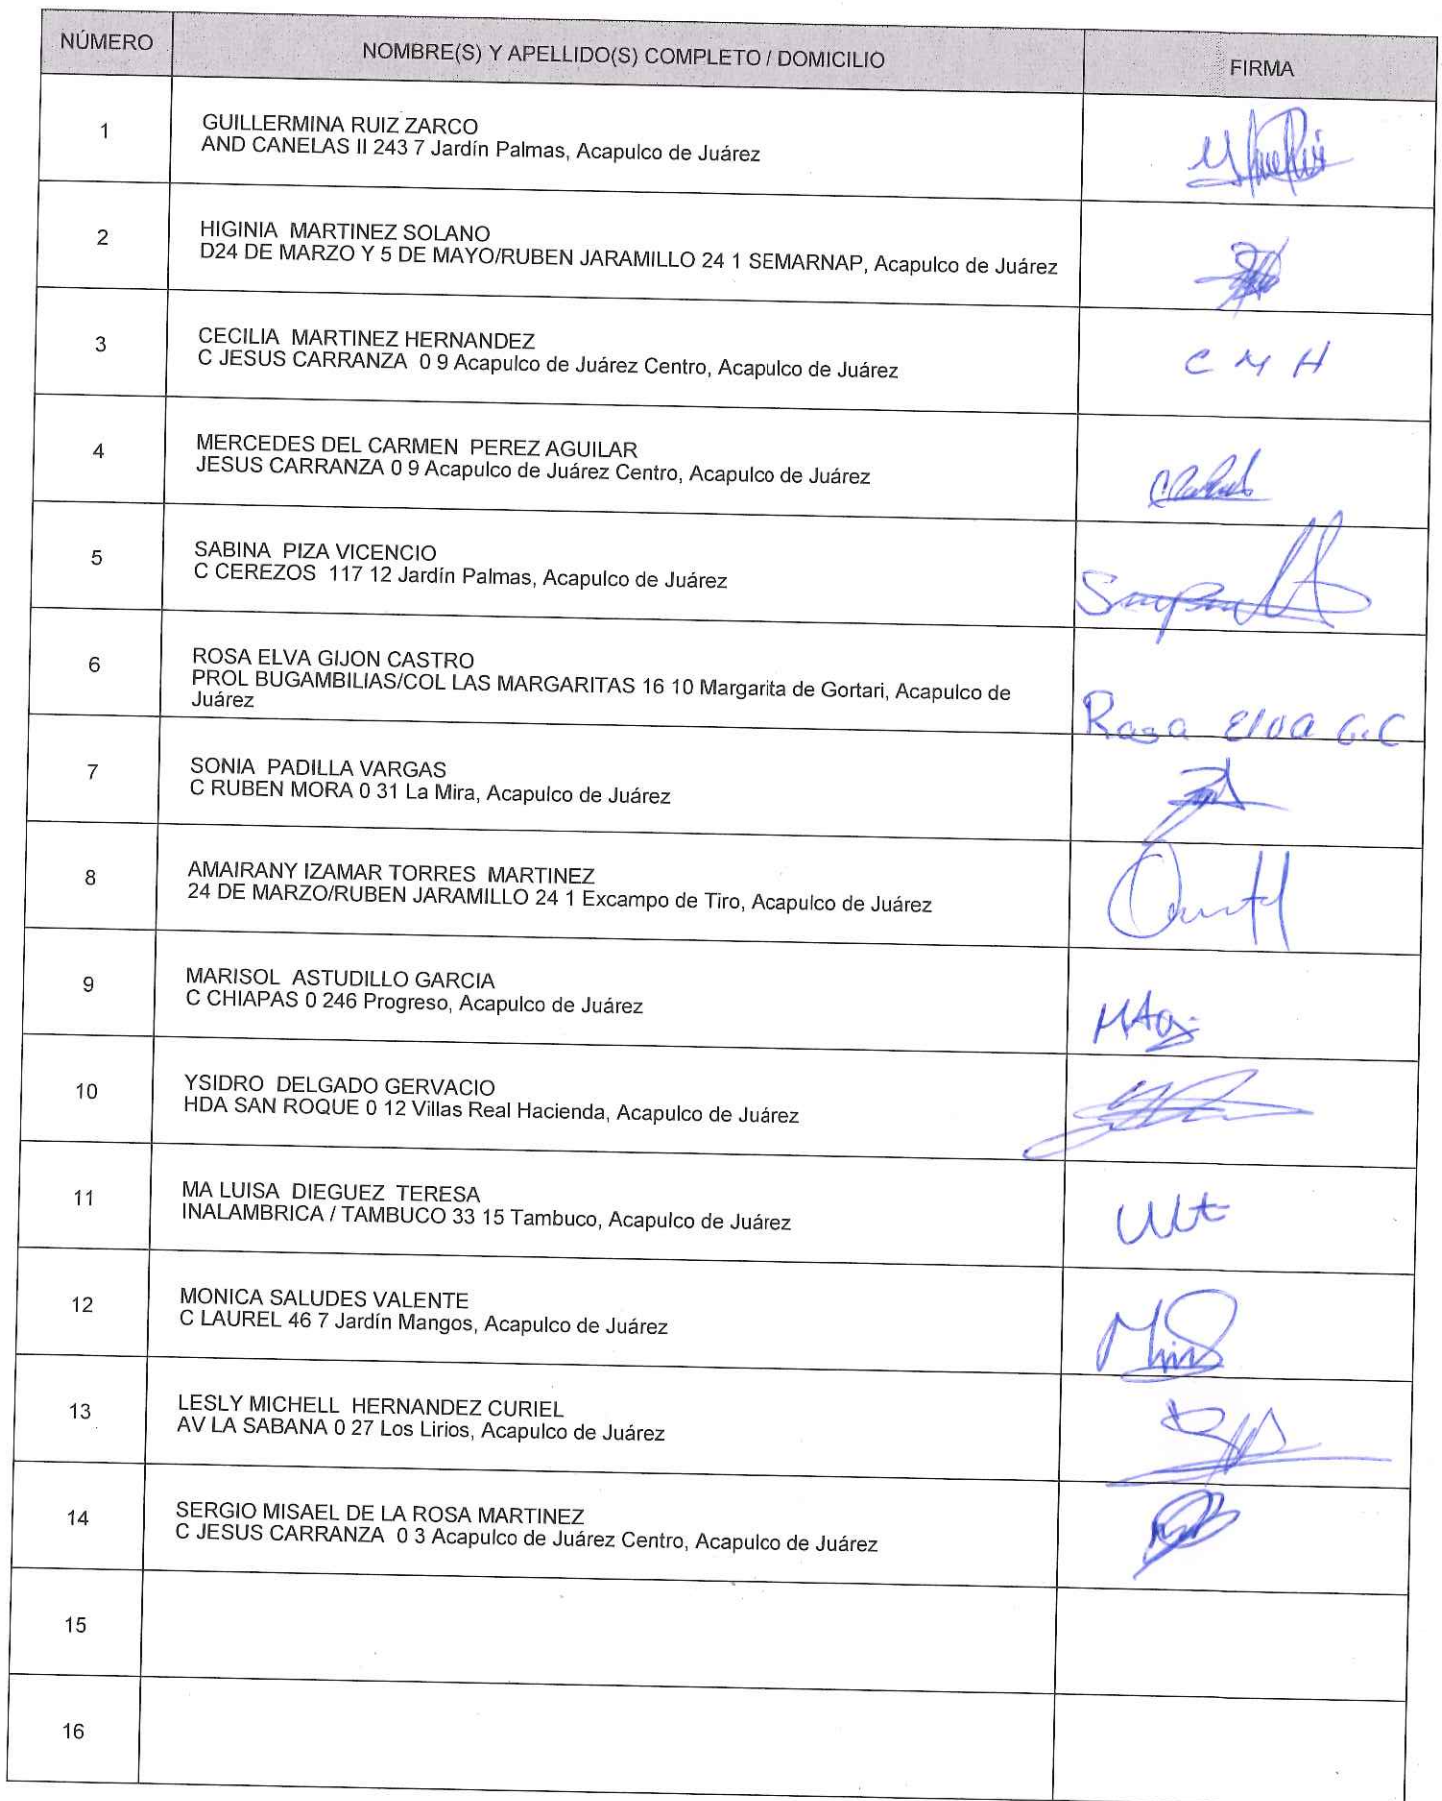 NÚMERO
NOMBRE(S) Y APELLIDO(S) COMPLETO / DOMICILIO
FIRMA
1
GUILLERMINA RUIZ ZARCO
AND CANELAS II 243 7 Jardín Palmas, Acapulco de Juárez
2
HIGINIA MARTINEZ SOLANO
D24 DE MARZO Y 5 DE MAYO/RUBEN JARAMILLO 24 1 SEMARNAP, Acapulco de Juárez
3
CECILIA MARTINEZ HERNANDEZ
C JESUS CARRANZA 0 9 Acapulco de Juárez Centro, Acapulco de Juárez
C M H
4
MERCEDES DEL CARMEN PEREZ AGUILAR
JESUS CARRANZA 0 9 Acapulco de Juárez Centro, Acapulco de Juárez
5
SABINA PIZA VICENCIO
C CEREZOS 117 12 Jardín Palmas, Acapulco de Juárez
6
ROSA ELVA GIJON CASTRO
PROL BUGAMBILIAS/COL LAS MARGARITAS 16 10 Margarita de Gortari, Acapulco de
Juárez
Rosa Elva G.C
7
SONIA PADILLA VARGAS
C RUBEN MORA 0 31 La Mira, Acapulco de Juárez
8
AMAIRANY IZAMAR TORRES MARTINEZ
24 DE MARZO/RUBEN JARAMILLO 24 1 Excampo de Tiro, Acapulco de Juárez
9
MARISOL ASTUDILLO GARCIA
C CHIAPAS 0 246 Progreso, Acapulco de Juárez
10
YSIDRO DELGADO GERVACIO
HDA SAN ROQUE 0 12 Villas Real Hacienda, Acapulco de Juárez
11
MA LUISA DIEGUEZ TERESA
INALAMBRICA / TAMBUCO 33 15 Tambuco, Acapulco de Juárez
12
MONICA SALUDES VALENTE
C LAUREL 46 7 Jardín Mangos, Acapulco de Juárez
13
LESLY MICHELL HERNANDEZ CURIEL
AV LA SABANA 0 27 Los Lirios, Acapulco de Juárez
14
SERGIO MISAEL DE LA ROSA MARTINEZ
C JESUS CARRANZA 0 3 Acapulco de Juárez Centro, Acapulco de Juárez
15
16